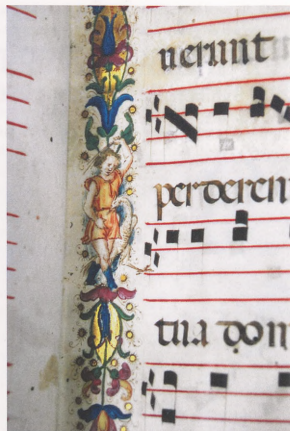 uerunt
perderen
tua dom